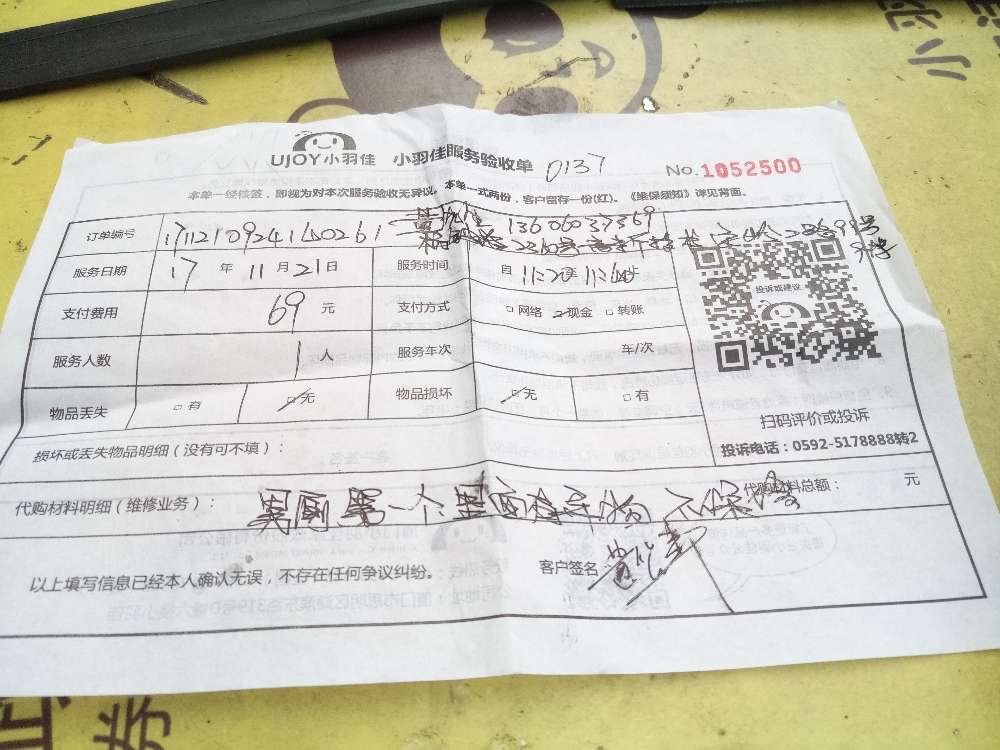 UJOY小羽佳 小羽佳服务验收单 0137 No.1052500
本单一经核签，即视为对本次服务验收无异议。本单一式两份，客户留存一份(红)。《维保须知》详见背面。
订单编号 17112109241450261 13606037369
99号
服务日期 17 年 11 月 21 日 服务时间 自 11:20 11:40
投诉或建议
支付费用 69 元 支付方式 □ 网络 现金 □ 转账
服务人数 1 人 服务车次 车/次
物品丢失 □ 有 无 物品损坏 无 □ 有
扫码评价或投诉
投诉电话：0592-5178888转2
损坏或丢失物品明细（没有可不填）：
代购材料明细（维修业务）： 男厕第一个 代购材料总额： 元
以上填写信息已经本人确认无误，不存在任何争议纠纷。 客户签名
小羽
券